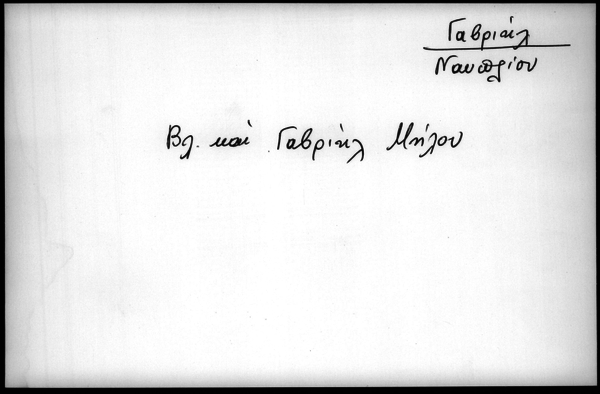 Γαβριήλ
Ναυπλίου
Βλ. καί Γαβριήλ Μήλου